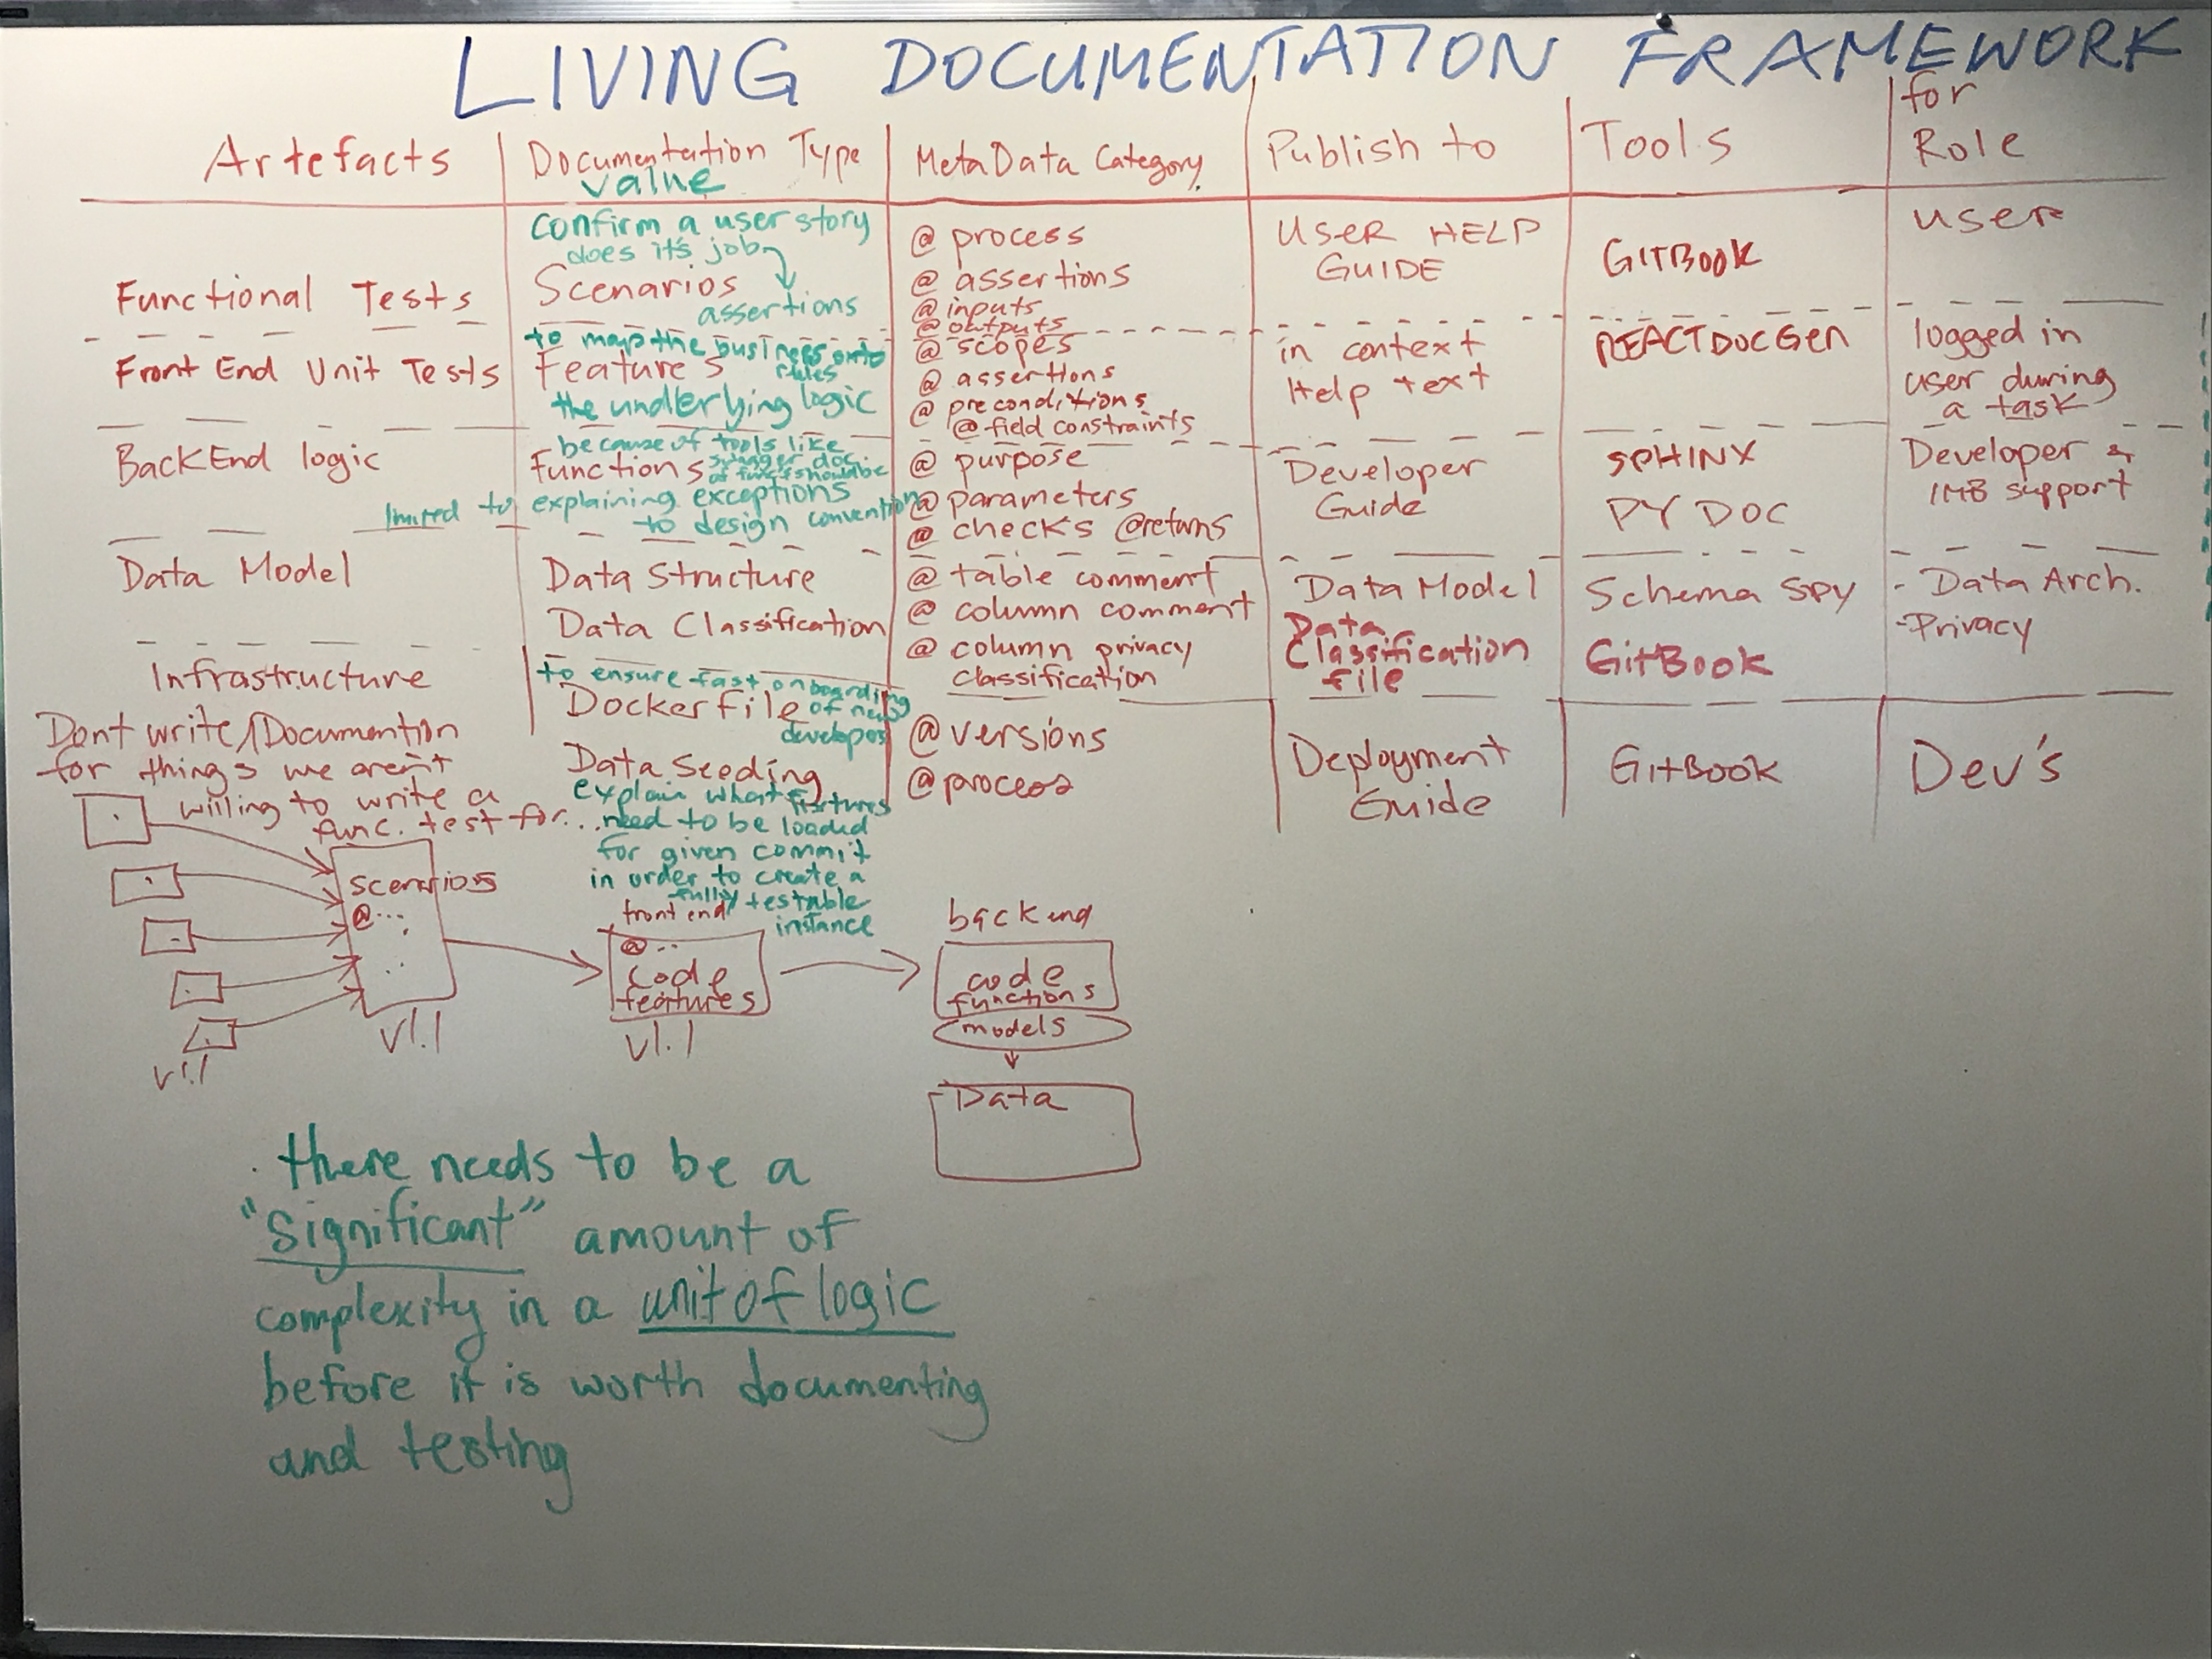 LIVING DOCUMENTATION FRAMEWORK
Artefacts
Documentation Type
value
MetaData Category
Publish to
Tools
for
Role
Functional Tests
confirm a user story
does it's job
Scenarios
assertions
@ process
@ assertions
@ inputs
@ outputs
USER HELP
GUIDE
GITBOOK
user
Front End Unit Tests
to map the business onto
rules
Features
the underlying logic
@ scopes
@ assertions
@ preconditions
@ field constraints
in context
Help text
REACTDOCGEN
logged in
user during
a task
BackEnd logic
because of tools like
swagger doc.
functions
of funcs should be
limited to explaining exceptions
to design convention
@ purpose
@ parameters
@ checks @returns
Developer
Guide
SPHINX
PY DOC
Developer &
IMB support
Data Model
Data Structure
Data Classification
@ table comment
@ column comment
@ column privacy
classification
Data Model
Data
Classification
file
Schema Spy
GitBook
- Data Arch.
- Privacy
Infrastructure
to ensure fast onboarding
Dockerfile
of new
developers
Data Seeding
explain what fixtures
need to be loaded
for given commit
in order to create a
fully testable
instance
@ versions
@ process
Deployment
Guide
GitBook
Dev's
Dont write/Documention
for things we aren't
willing to write a
func. test for...
scenarios
@...
v1.1
v1.1
front end
@..
code
features
v1.1
backend
code
functions
models
Data
there needs to be a
"significant" amount of
complexity in a unit of logic
before it is worth documenting
and testing